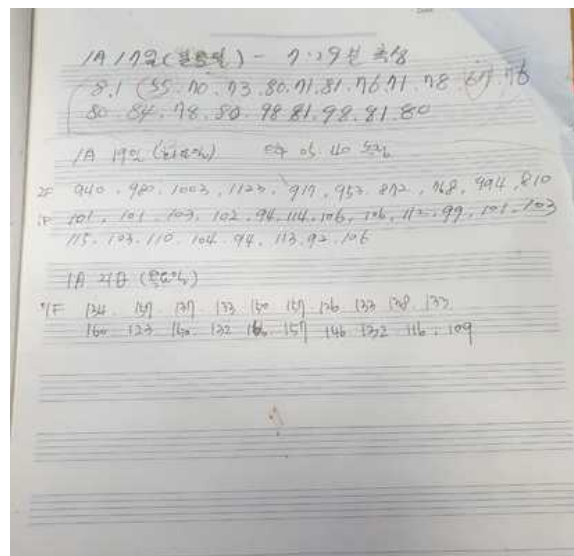 1A 17일 (일요일) - 7:29분 측정
8.1 (55. 70. 73. 80. 71. 81. 76. 71. 78. 67. 76
80. 84. 78. 80. 98 81. 98. 81. 80
1A 19일 (화요일)
2F 940. 980. 1003. 1123. 917. 953. 872. 768. 994. 810
1F 101. 101. 103. 102. 94. 114. 106. 106. 112. 99. 101. 103
115. 103. 110. 104. 94. 113. 92. 106
1A 21일 (목요일)
1F 134. 157 137. 133 150 157. 126 133 138. 133
160 123 150. 132 157 146 132 116. 109